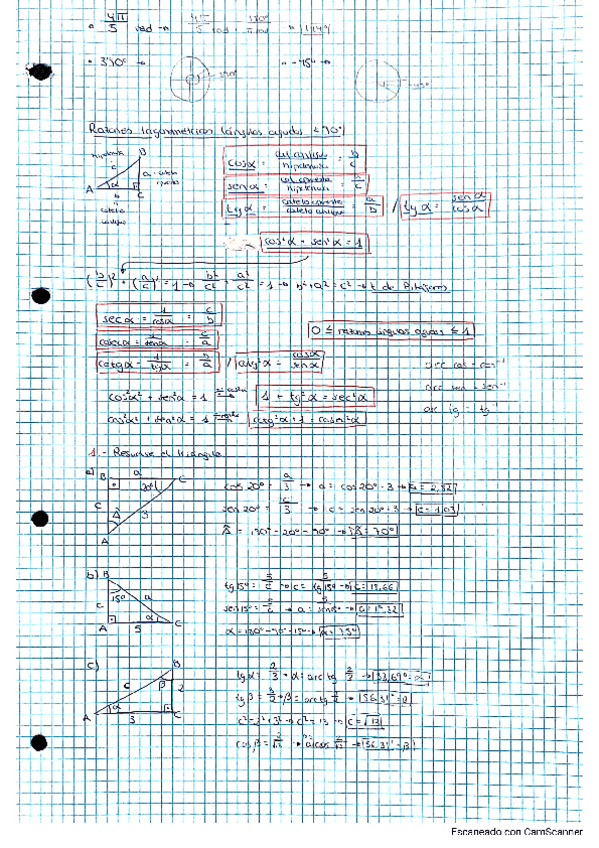 4π/5 rad → 4π/5 rad · 180°/π rad = 144°
390° →
-45° →
Razones trigonométricas (ángulos agudos ≤ 90°)
hipotenusa B
c a = cateto opuesto
A α b C
cateto contiguo
cos α = cat contiguo/hipotenusa = b/c
sen α = cat opuesto/hipotenusa = a/c
tg α = cateto opuesto/cateto contiguo = a/b / tg α = sen α/cos α
cos²α + sen²α = 1
(b/c)² + (a/c)² = 1 → b²/c² + a²/c² = 1 → b² + a² = c² → t. de Pitágoras
sec α = 1/cos α = c/b
0 ≤ razones ángulos agudos ≤ 1
cosec α = 1/sen α = c/a
cotg α = 1/tg α = b/a / cotg α = cos α/sen α
arc cos = cos⁻¹
arc sen = sen⁻¹
arc tg = tg⁻¹
cos²α + sen²α = 1 → 1 + tg²α = sec²α
cos²α + sen²α = 1 → cotg²α + 1 = cosec²α
1.- Resolver el triángulo
a) B a C
20°
c 3
Â
A
cos 20° = a/3 → a = cos 20° · 3 → a = 2,82
sen 20° = c/3 → c = sen 20° · 3 → c = 1,03
Â = 180° - 20° - 90° → Â = 70°
b) B
15° a
c
α
A 5 C
tg 15° = 5/c → c = 5/tg 15° → c = 18,66
sen 15° = 5/a → a = 5/sen 15° → a = 19,32
α = 180° - 90° - 15° → α = 75°
c) B
c β 2
A α 3 C
tg α = 2/3 → α = arc tg 2/3 → 33,69° = α
tg β = 3/2 → β = arc tg 3/2 → 56,31° = β
c² = 2² + 3² → c² = 13 → c = √13
cos β = 2/√13 → arc cos 2/√13 → 56,31° = β
Escaneado con CamScanner